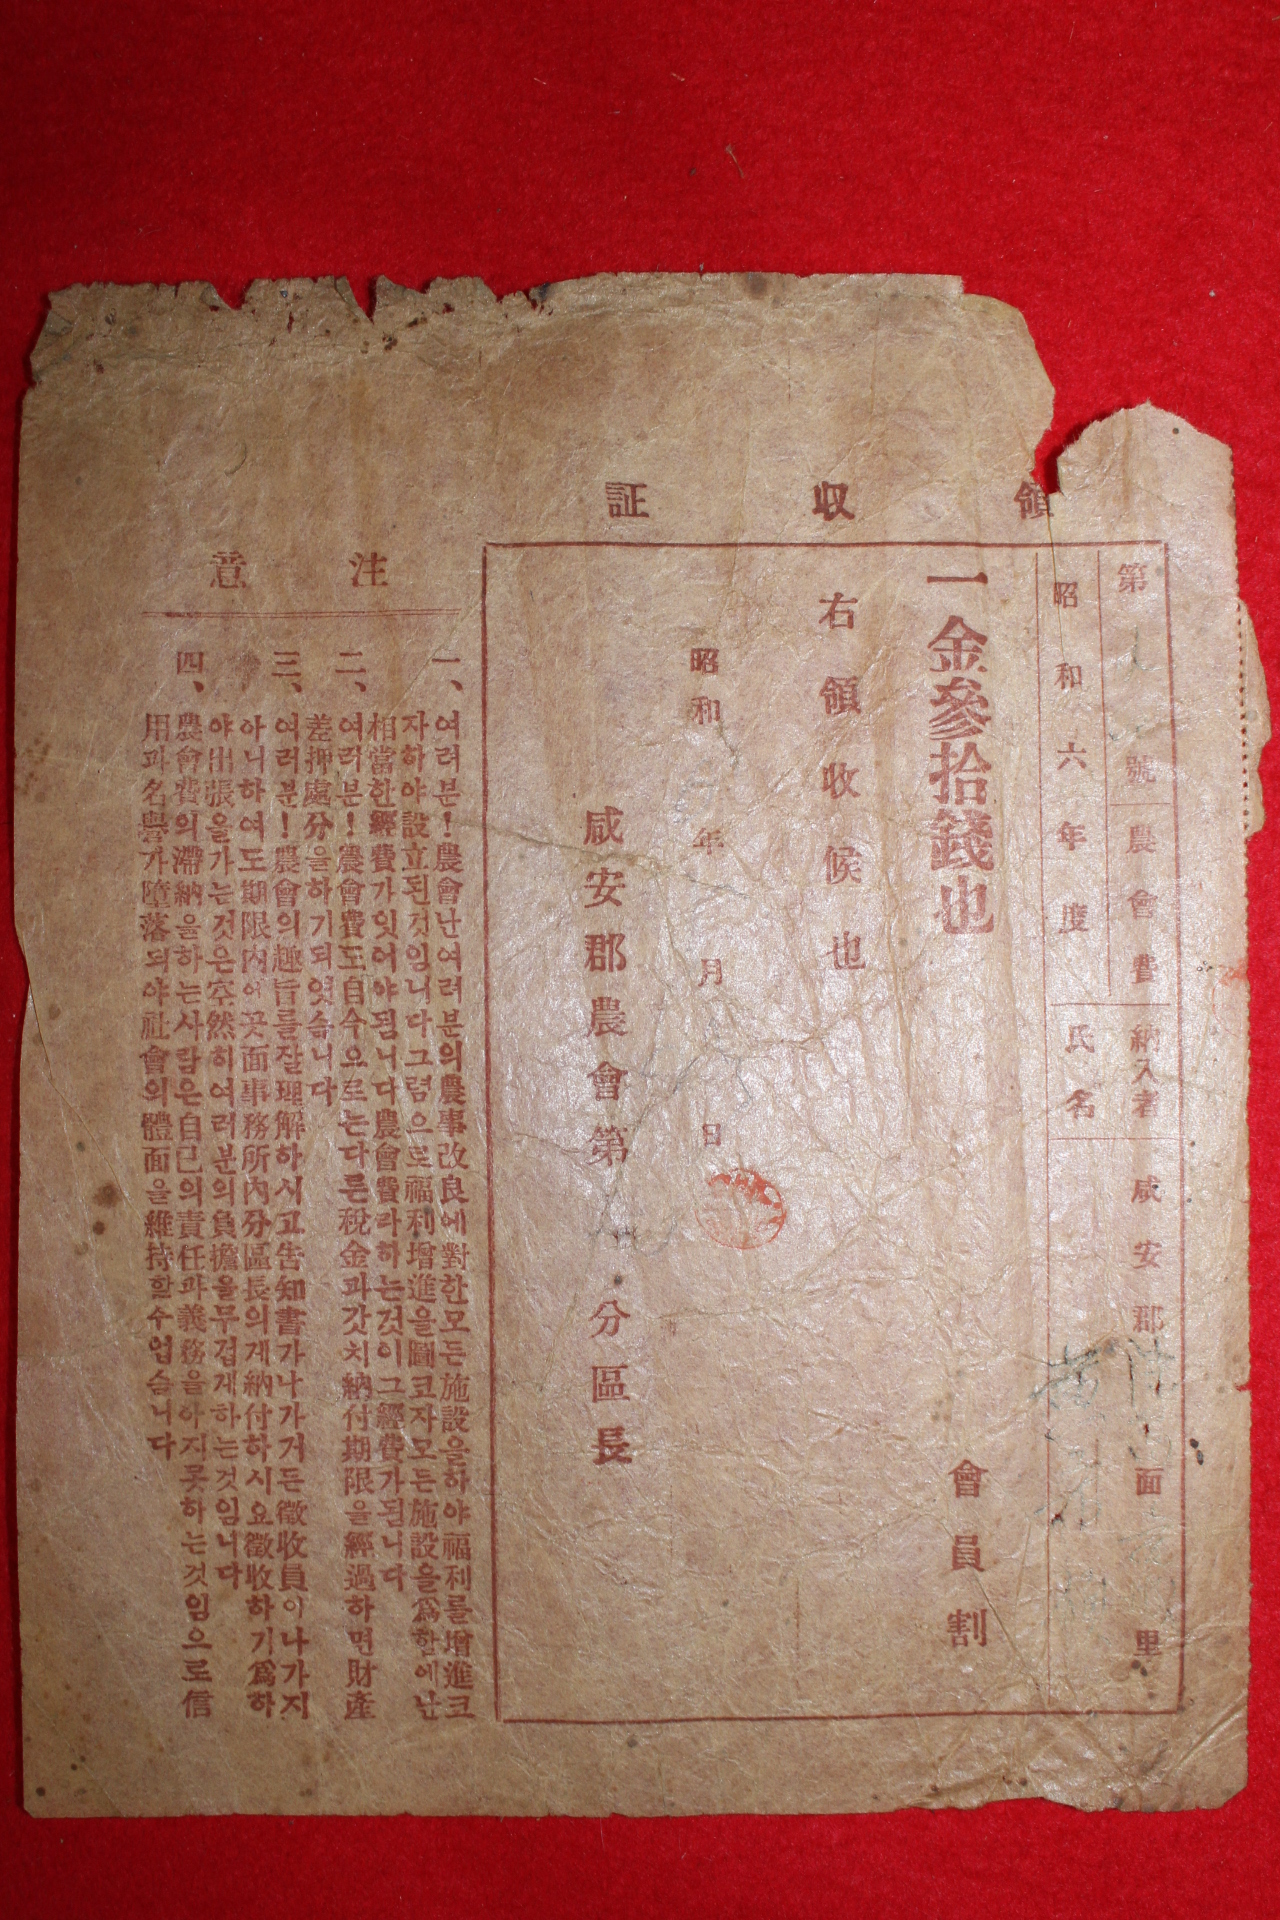 領收証
第 號 農會費 納入者 咸安郡 面 里
昭和六年度 氏名
一金參拾錢也 會員割
右領收候也
昭和 年 月 日
咸安郡農會第 分區長
注意
一、여러분！農會난여러분의農事改良에對한모든施設을하야福利를增進코
자하야設立된것임니다그럼으로福利增進을圖코자모든施設을爲함에난
相當한經費가잇어야됨니다農會費라하는것이그經費가됨니다
二、여러분！農會費도自今으로는다른稅金과갓치納付期限을經過하면財產
差押處分을하기되엿슴니다
三、여러분！農會의趣旨를잘理解하시고告知書가나가거든徵收員이나가지
아니하여도期限內에곳面事務所內分區長의게納付하시요徵收하기爲하
야出張을가는것은空然히여러분의負擔을무겁게하는것임니다
四、農會費의滯納을하는사람은自己의責任과義務을아지못하는것임으로信
用과名譽가墮落되야社會의體面을維持할수업슴니다